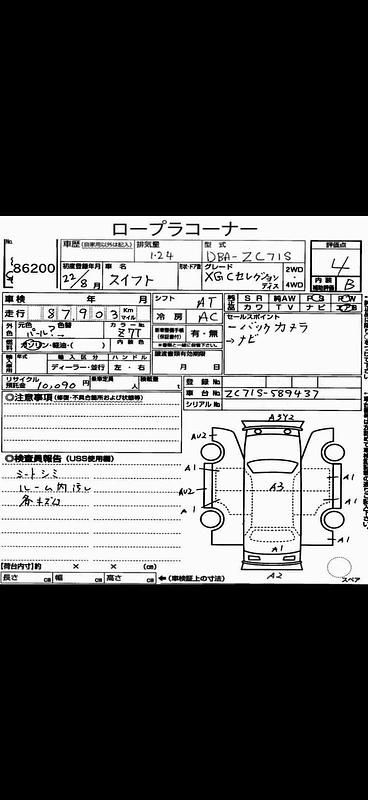 ロープラコーナー
No.
86200
車歴(自家用以外は記入)
排気量
1.24
型式
DBA-ZC71S
評価点
4
初度登録年月
22/8月
車名
スイフト
形状・ドア数
グレード
XGCセレクション
ディス
2WD
4WD
内装
補助評価
B
車検 年 月
シフト
AT
走行 87,903 Km マイル
冷房
AC
SR 純AW PS PW
カワ TV ナビ エアB
外色
元色
パール?→
色替
カラーNo
Z7T
有・無
セールスポイント
→バックカメラ
→ナビ
燃料
ガソリン・軽油・( )
内装色
輸入車
年式
輸入区分
ディーラー・並行
ハンドル
左・右
譲渡書類有効期限
月 日
リサイクル
預託金
10,090円
乗車定員
人
積載量
t
登録No
車台No
ZC71S-589437
シリアルNo
◎注意事項(修復・不具合箇所および状態等)
◎検査員報告(USS使用欄)
シートシミ
ルーム内汚し
各キズ凹
A3Y2
AU2
A1
A1
AU2
A3
A1
A1
A1
A1
A1
A2
スペア
【荷台内寸】約 × × (cm)
長さ cm 幅 cm 高さ cm ←(車検証上の寸法)